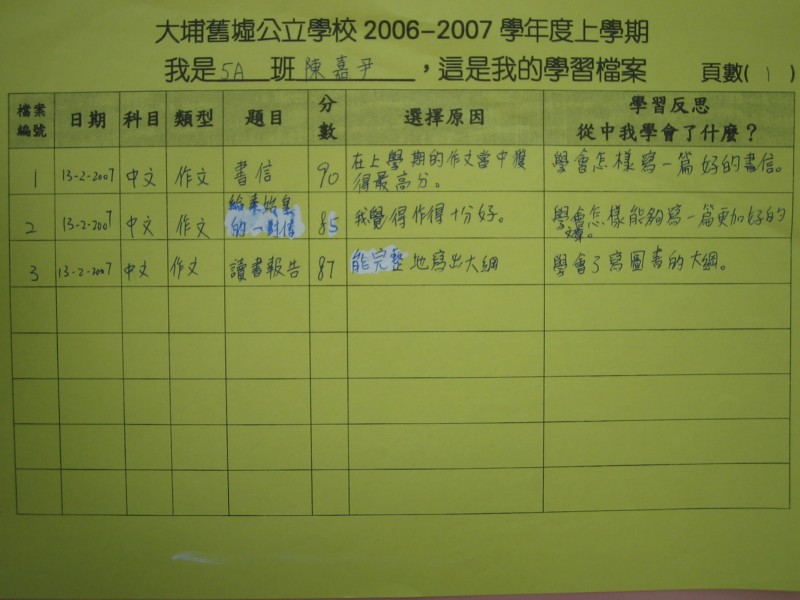 大埔舊墟公立學校 2006-2007 學年度上學期
我是 5A 班 陳嘉尹 ，這是我的學習檔案 頁數( 1 )
檔案編號 日期 科目 類型 題目 分數 選擇原因 學習反思 從中我學會了什麼？
1 13-2-2007 中文 作文 書信 90 在上學期的作文當中獲得最高分。 學會怎樣寫一篇好的書信。
2 13-2-2007 中文 作文 給秦始皇的一封信 85 我覺得作得十分好。 學會怎樣能夠寫一篇更加好的文章。
3 13-2-2007 中文 作文 讀書報告 87 能完整地寫出大綱 學會了寫圖書的大綱。